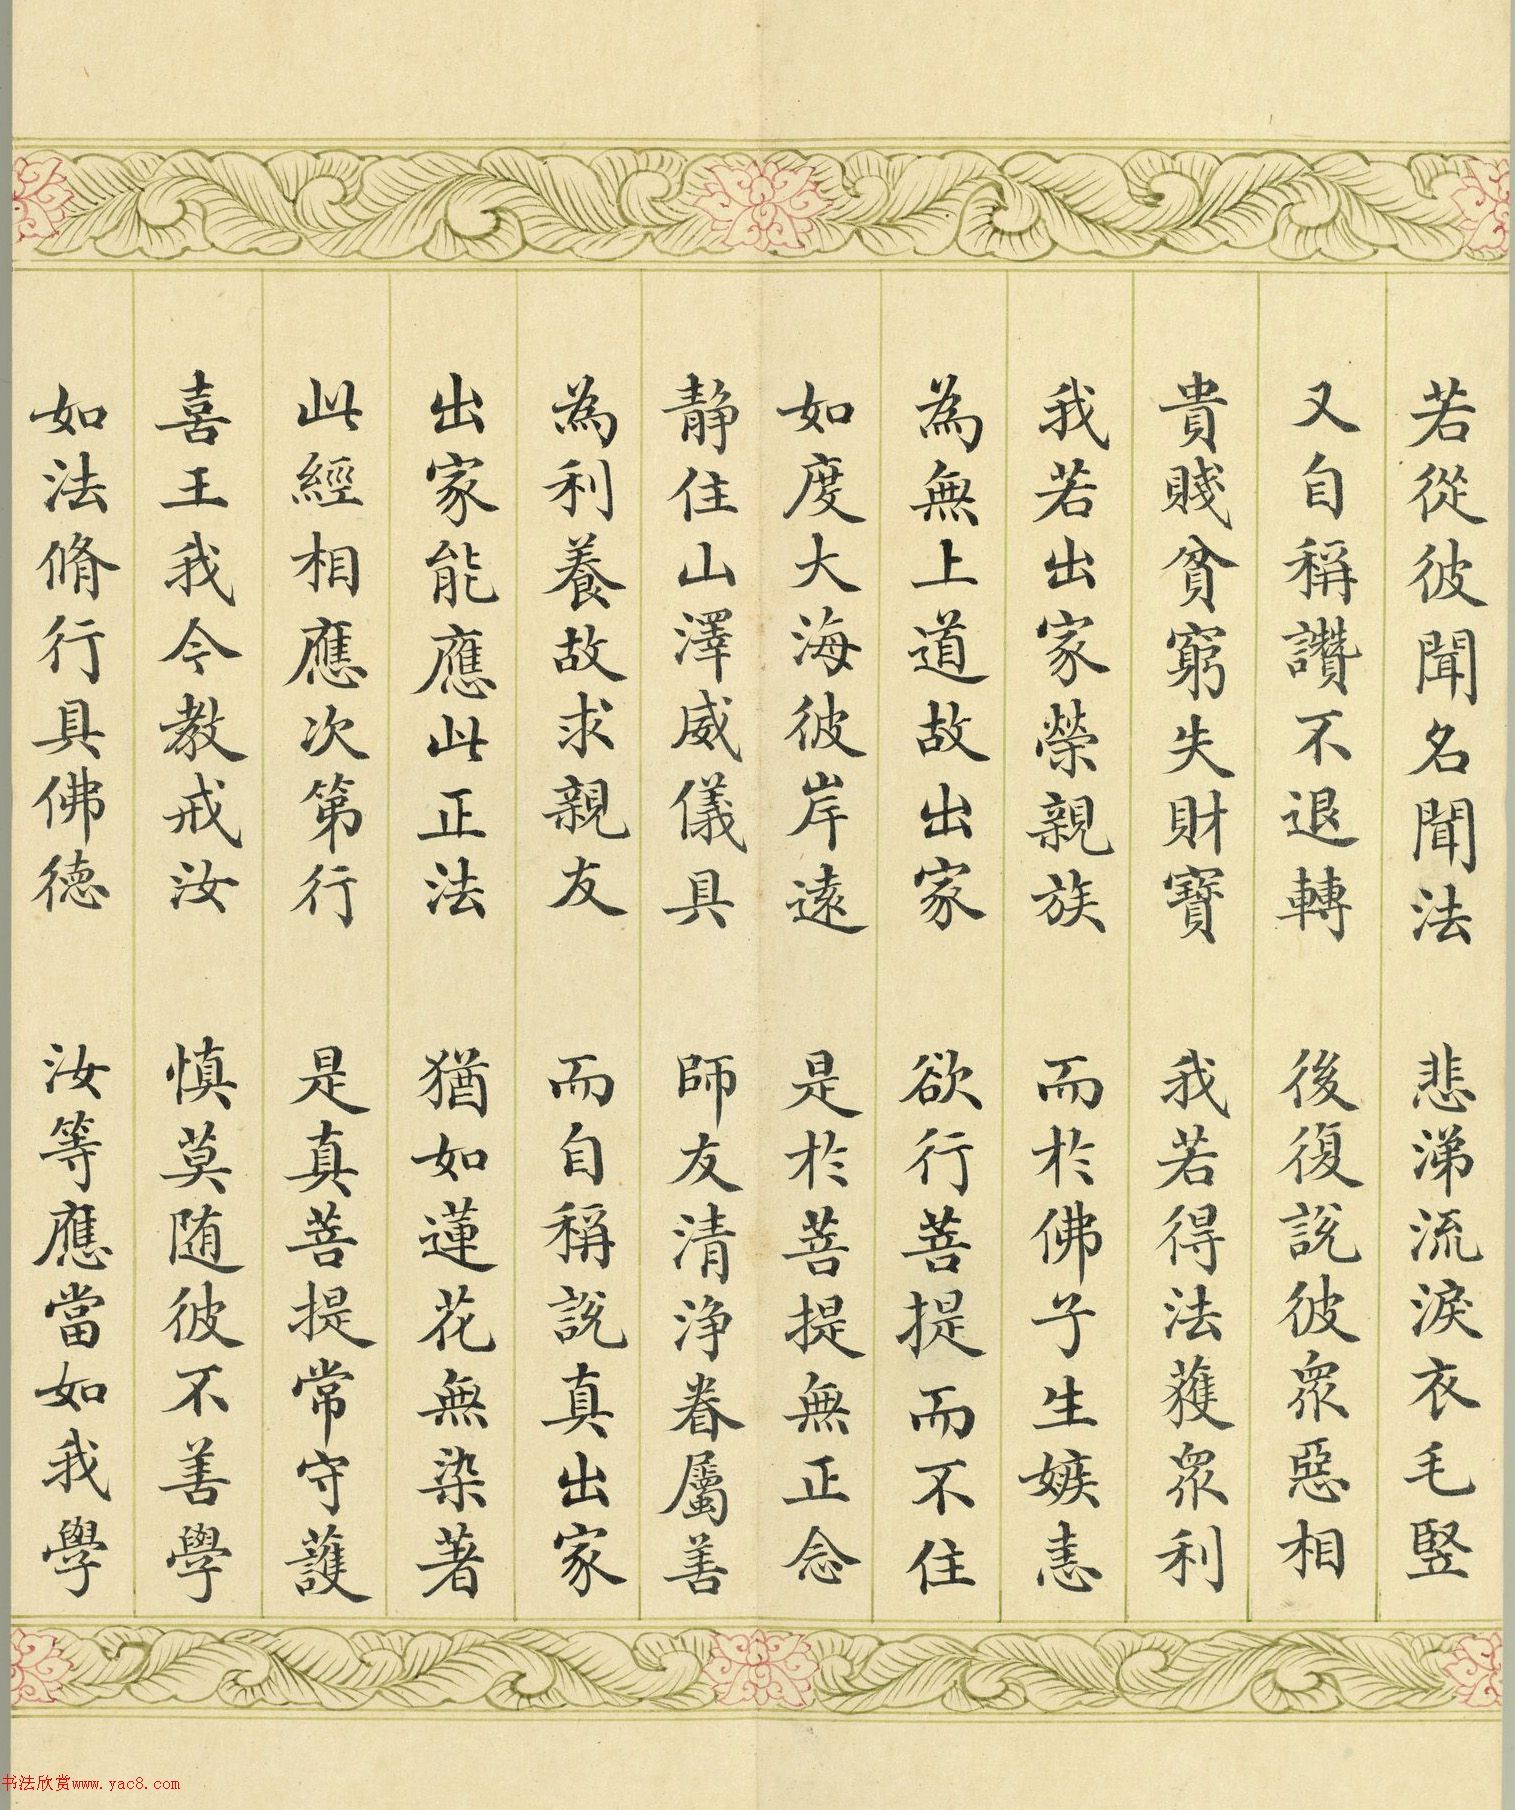 若從彼聞名聞法　悲涕流淚衣毛竪
又自稱讚不退轉　後復說彼眾惡相
貴賤貧窮失財寶　我若得法獲眾利
我若出家榮親族　而於佛子生嫉恚
為無上道故出家　欲行菩提而不住
如度大海彼岸遠　是於菩提無正念
靜住山澤威儀具　師友清淨眷屬善
為利養故求親友　而自稱說真出家
出家能應此正法　猶如蓮花無染著
此經相應次第行　是真菩提常守護
喜王我今教戒汝　慎莫随彼不善學
如法脩行具佛德　汝等應當如我學
书法欣赏www.yac8.com